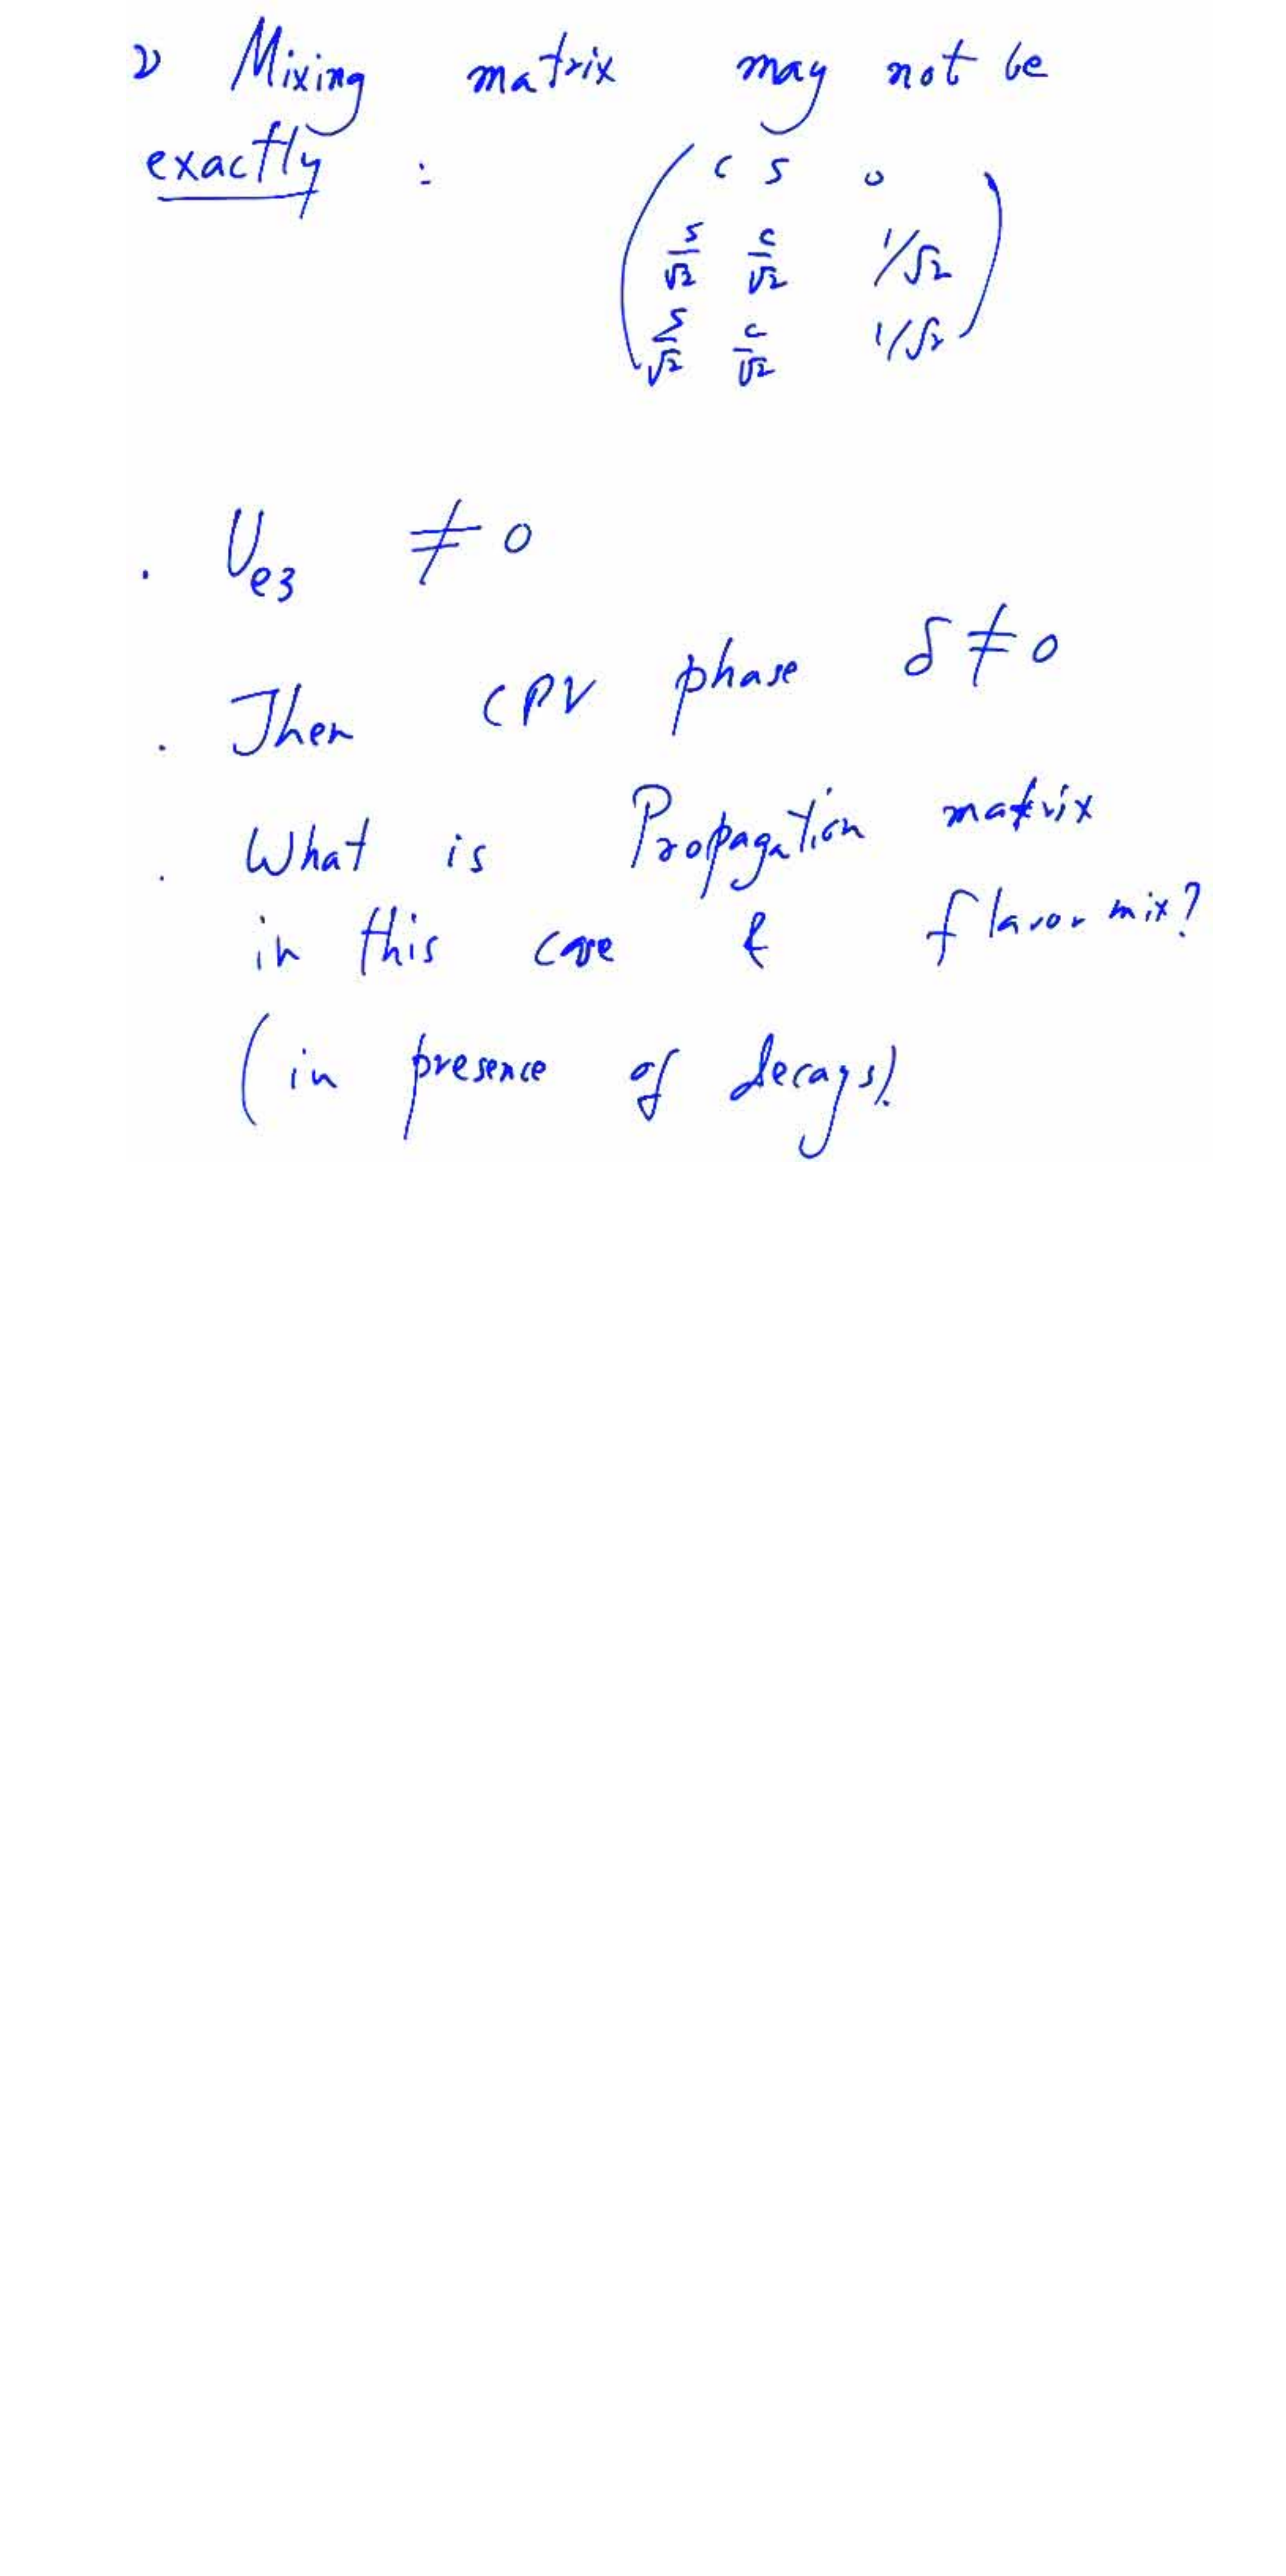 ν Mixing matrix may not be
exactly :
( c s 0
s/√2 c/√2 1/√2
s/√2 c/√2 1/√2 )
. U_e3 ≠ 0
. Then CPV phase δ ≠ 0
. What is Propagation matrix
in this case & flavor mix?
(in presence of decays).